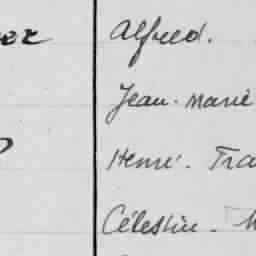 Alfred.
Jean-Marie
Henri. Tra
Célestin.